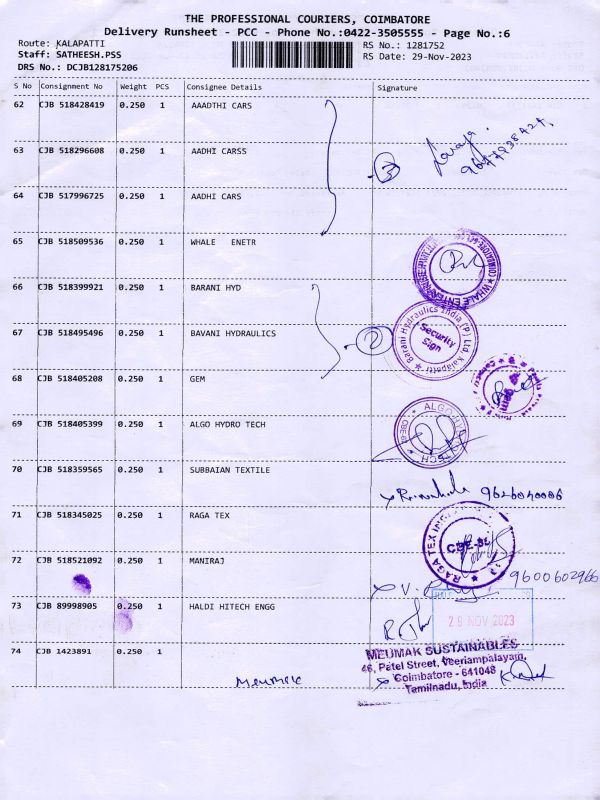 THE PROFESSIONAL COURIERS, COIMBATORE
Delivery Runsheet - PCC - Phone No.:0422-3505555 - Page No.:6
Route: KALAPATTI RS No.: 1281752
Staff: SATHEESH.PSS RS Date: 29-Nov-2023
DRS No.: DCJB128175206
S No Consignment No Weight PCS Consignee Details Signature
62 CJB 518428419 0.250 1 AAADTHI CARS
63 CJB 518296608 0.250 1 AADHI CARSS
3
64 CJB 517996725 0.250 1 AADHI CARS
65 CJB 518509536 0.250 1 WHALE ENETR
WHALE ENTERPRISE
66 CJB 518399921 0.250 1 BARANI HYD
67 CJB 518495496 0.250 1 BAVANI HYDRAULICS
2
Barani Hydraulics India (P) Ltd. Kalapatti
Security
Sign
68 CJB 518405208 0.250 1 GEM
69 CJB 518405399 0.250 1 ALGO HYDRO TECH
ALGO HYD TECH
70 CJB 518359565 0.250 1 SUBBAIAN TEXTILE
9626040006
71 CJB 518345025 0.250 1 RAGA TEX
RAGA TEX
72 CJB 518521092 0.250 1 MANIRAJ
9600602966
73 CJB 89998905 0.250 1 HALDI HITECH ENGG
29 NOV 2023
74 CJB 1423891 0.250 1
MEUMAK
MEUMAK SUSTAINABLES
46, Patel Street, Veeriampalayam,
Coimbatore - 641048
Tamilnadu, India